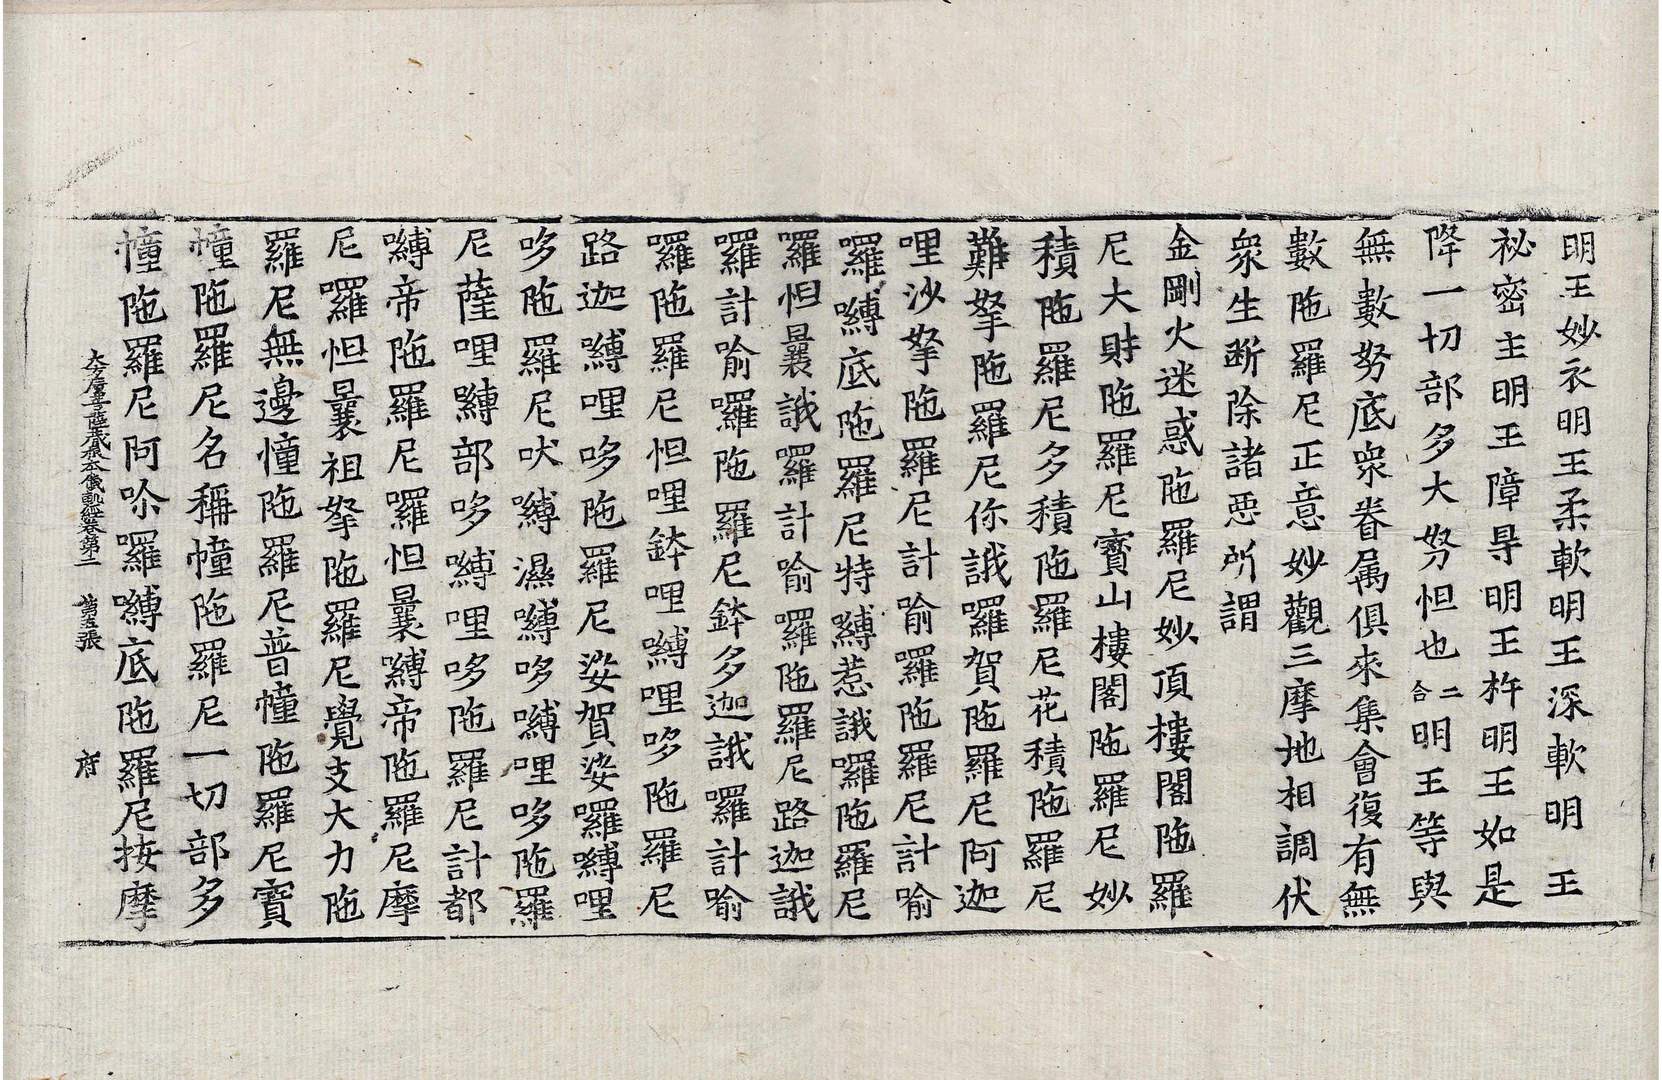 明王妙衣明王柔軟明王深軟明王
祕密主明王障㝵明王杵明王如是
降一切部多大努怛也二合明王等與
無數努底衆眷属俱來集會復有無
數陁羅尼正意妙觀三摩地相調伏
衆生断除諸惡所謂
金剛火迷惑陁羅尼妙頂樓閣陁羅
尼大財陁羅尼寳山樓閣陁羅尼妙
積陁羅尼多積陁羅尼花積陁羅尼
難拏陁羅尼你誐囉賀陁羅尼阿迦
囉嚩底陁羅尼特嚩惹誐囉陁羅尼
哩沙拏陁羅尼計喻囉陁羅尼計喻
囉怛曩誐囉計喻囉陁羅尼路迦誐
囉計喻囉陁羅尼鉢多迦誐囉計喻
囉陁羅尼怛哩鉢哩嚩哩哆陁羅尼
路迦嚩哩哆陁羅尼娑賀娑囉嚩哩
哆陁羅尼吠嚩濕嚩哆嚩哩哆陁羅
尼薩哩嚩部哆嚩哩哆陁羅尼計都
嚩帝陁羅尼囉怛曩嚩帝陁羅尼摩
尼囉怛曩祖拏陁羅尼覺支大力陁
羅尼無邊幢陁羅尼普幢陁羅尼寳
幢陁羅尼名稱幢陁羅尼一切部多
幢陁羅尼阿尒囉嚩底陁羅尼按摩
大方廣菩薩藏根本儀軌經卷第二 第五張 府